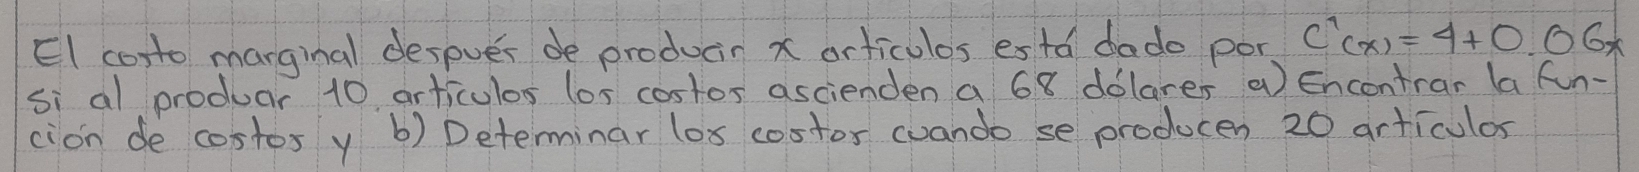 El costo marginal después de producir x artículos está dado por C'(x) = 4+0.06x
si al producir 10 artículos los costos ascienden a 68 dólares a) Encontrar la fun-
ción de costos y b) Determinar los costos cuando se producen 20 artículos